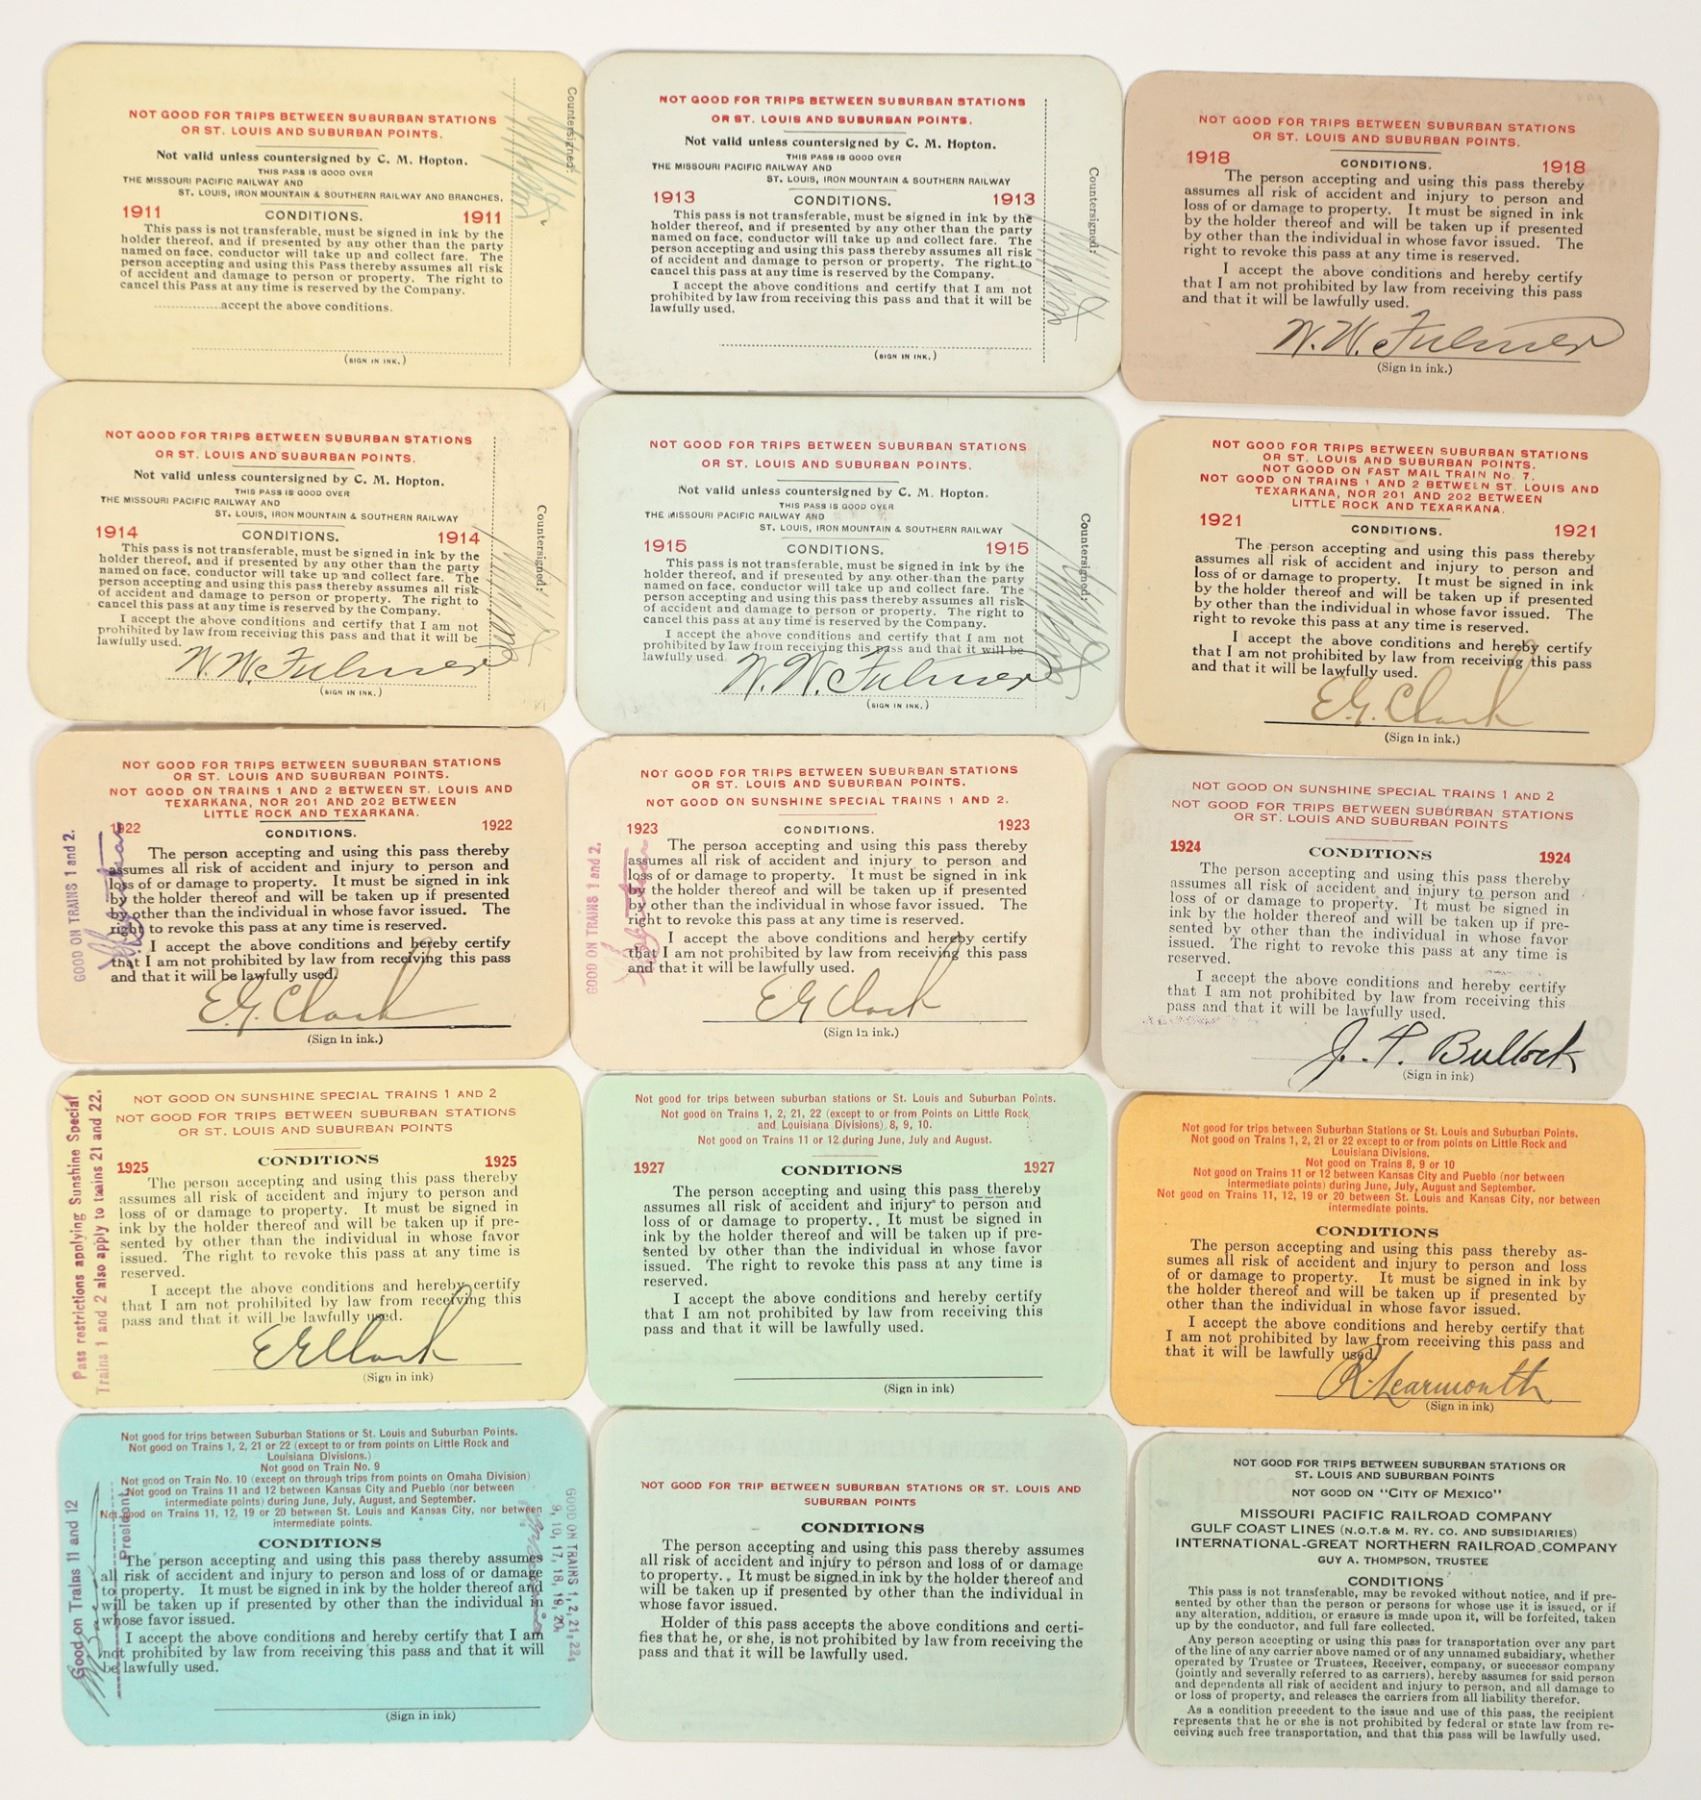 NOT GOOD FOR TRIPS BETWEEN SUBURBAN STATIONS
OR ST. LOUIS AND SUBURBAN POINTS.
Not valid unless countersigned by C. M. Hopton.
THIS PASS IS GOOD OVER
THE MISSOURI PACIFIC RAILWAY AND
ST. LOUIS, IRON MOUNTAIN & SOUTHERN RAILWAY AND BRANCHES.
1911 CONDITIONS. 1911
This pass is not transferable, must be signed in ink by the
holder thereof, and if presented by any other than the party
named on face, conductor will take up and collect fare. The
person accepting and using this Pass thereby assumes all risk
of accident and damage to person or property. The right to
cancel this Pass at any time is reserved by the Company.
..........accept the above conditions.
(SIGN IN INK.)
Countersigned:
NOT GOOD FOR TRIPS BETWEEN SUBURBAN STATIONS
OR ST. LOUIS AND SUBURBAN POINTS.
Not valid unless countersigned by C. M. Hopton.
THIS PASS IS GOOD OVER
THE MISSOURI PACIFIC RAILWAY AND
ST. LOUIS, IRON MOUNTAIN & SOUTHERN RAILWAY
1913 CONDITIONS. 1913
This pass is not transferable, must be signed in ink by the
holder thereof, and if presented by any other than the party
named on face, conductor will take up and collect fare. The
person accepting and using this pass thereby assumes all risk
of accident and damage to person or property. The right to
cancel this pass at any time is reserved by the Company.
I accept the above conditions and certify that I am not
prohibited by law from receiving this pass and that it will be
lawfully used.
(SIGN IN INK.)
Countersigned:
NOT GOOD FOR TRIPS BETWEEN SUBURBAN STATIONS
OR ST. LOUIS AND SUBURBAN POINTS.
1918 CONDITIONS. 1918
The person accepting and using this pass thereby
assumes all risk of accident and injury to person and
loss of or damage to property. It must be signed in ink
by the holder thereof and will be taken up if presented
by other than the individual in whose favor issued. The
right to revoke this pass at any time is reserved.
I accept the above conditions and hereby certify
that I am not prohibited by law from receiving this pass
and that it will be lawfully used.
W. W. Fulmer
(Sign in ink.)
NOT GOOD FOR TRIPS BETWEEN SUBURBAN STATIONS
OR ST. LOUIS AND SUBURBAN POINTS.
Not valid unless countersigned by C. M. Hopton.
THIS PASS IS GOOD OVER
THE MISSOURI PACIFIC RAILWAY AND
ST. LOUIS, IRON MOUNTAIN & SOUTHERN RAILWAY
1914 CONDITIONS. 1914
This pass is not transferable, must be signed in ink by the
holder thereof, and if presented by any other than the party
named on face, conductor will take up and collect fare. The
person accepting and using this pass thereby assumes all risk
of accident and damage to person or property. The right to
cancel this pass at any time is reserved by the Company.
I accept the above conditions and certify that I am not
prohibited by law from receiving this pass and that it will be
lawfully used.
W. W. Fulmer
(SIGN IN INK.)
Countersigned:
NOT GOOD FOR TRIPS BETWEEN SUBURBAN STATIONS
OR ST. LOUIS AND SUBURBAN POINTS.
Not valid unless countersigned by C. M. Hopton.
THIS PASS IS GOOD OVER
THE MISSOURI PACIFIC RAILWAY AND
ST. LOUIS, IRON MOUNTAIN & SOUTHERN RAILWAY
1915 CONDITIONS. 1915
This pass is not transferable, must be signed in ink by the
holder thereof, and if presented by any other than the party
named on face, conductor will take up and collect fare. The
person accepting and using this pass thereby assumes all risk
of accident and damage to person or property. The right to
cancel this pass at any time is reserved by the Company.
I accept the above conditions and certify that I am not
prohibited by law from receiving this pass and that it will be
lawfully used.
W. W. Fulmer
(SIGN IN INK.)
Countersigned:
NOT GOOD FOR TRIPS BETWEEN SUBURBAN STATIONS
OR ST. LOUIS AND SUBURBAN POINTS.
NOT GOOD ON FAST MAIL TRAIN No. 7.
NOT GOOD ON TRAINS 1 AND 2 BETWEEN ST. LOUIS AND
TEXARKANA, NOR 201 AND 202 BETWEEN
LITTLE ROCK AND TEXARKANA.
1921 CONDITIONS. 1921
The person accepting and using this pass thereby
assumes all risk of accident and injury to person and
loss of or damage to property. It must be signed in ink
by the holder thereof and will be taken up if presented
by other than the individual in whose favor issued. The
right to revoke this pass at any time is reserved.
I accept the above conditions and hereby certify
that I am not prohibited by law from receiving this pass
and that it will be lawfully used.
E.G. Clark
(Sign in ink.)
NOT GOOD FOR TRIPS BETWEEN SUBURBAN STATIONS
OR ST. LOUIS AND SUBURBAN POINTS.
NOT GOOD ON TRAINS 1 AND 2 BETWEEN ST. LOUIS AND
TEXARKANA, NOR 201 AND 202 BETWEEN
LITTLE ROCK AND TEXARKANA.
1922 CONDITIONS. 1922
The person accepting and using this pass thereby
assumes all risk of accident and injury to person and
loss of or damage to property. It must be signed in ink
by the holder thereof and will be taken up if presented
by other than the individual in whose favor issued. The
right to revoke this pass at any time is reserved.
I accept the above conditions and hereby certify
that I am not prohibited by law from receiving this pass
and that it will be lawfully used.
E.G. Clark
(Sign in ink.)
GOOD ON TRAINS 1 and 2.
NOT GOOD FOR TRIPS BETWEEN SUBURBAN STATIONS
OR ST. LOUIS AND SUBURBAN POINTS.
NOT GOOD ON SUNSHINE SPECIAL TRAINS 1 AND 2.
1923 CONDITIONS. 1923
The person accepting and using this pass thereby
assumes all risk of accident and injury to person and
loss of or damage to property. It must be signed in ink
by the holder thereof and will be taken up if presented
by other than the individual in whose favor issued. The
right to revoke this pass at any time is reserved.
I accept the above conditions and hereby certify
that I am not prohibited by law from receiving this pass
and that it will be lawfully used.
E G Clark
(Sign in ink.)
GOOD ON TRAINS 1 and 2.
NOT GOOD ON SUNSHINE SPECIAL TRAINS 1 AND 2
NOT GOOD FOR TRIPS BETWEEN SUBURBAN STATIONS
OR ST. LOUIS AND SUBURBAN POINTS
1924 CONDITIONS 1924
The person accepting and using this pass thereby
assumes all risk of accident and injury to person and
loss of or damage to property. It must be signed in
ink by the holder thereof and will be taken up if pre-
sented by other than the individual in whose favor
issued. The right to revoke this pass at any time is
reserved.
I accept the above conditions and hereby certify
that I am not prohibited by law from receiving this
pass and that it will be lawfully used.
J. P. Bullock
(Sign in ink)
NOT GOOD ON SUNSHINE SPECIAL TRAINS 1 AND 2
NOT GOOD FOR TRIPS BETWEEN SUBURBAN STATIONS
OR ST. LOUIS AND SUBURBAN POINTS
1925 CONDITIONS 1925
The person accepting and using this pass thereby
assumes all risk of accident and injury to person and
loss of or damage to property. It must be signed in
ink by the holder thereof and will be taken up if pre-
sented by other than the individual in whose favor
issued. The right to revoke this pass at any time is
reserved.
I accept the above conditions and hereby certify
that I am not prohibited by law from receiving this
pass and that it will be lawfully used.
E G Clark
(Sign in ink)
Pass restrictions applying Sunshine Special
Trains 1 and 2 also apply to trains 21 and 22.
Not good for trips between suburban stations or St. Louis and Suburban Points.
Not good on Trains 1, 2, 21, 22 (except to or from Points on Little Rock
and Louisiana Divisions) 8, 9, 10.
Not good on Trains 11 or 12 during June, July and August.
1927 CONDITIONS 1927
The person accepting and using this pass thereby
assumes all risk of accident and injury to person and
loss of or damage to property. It must be signed in
ink by the holder thereof and will be taken up if pre-
sented by other than the individual in whose favor
issued. The right to revoke this pass at any time is
reserved.
I accept the above conditions and hereby certify
that I am not prohibited by law from receiving this
pass and that it will be lawfully used.
(Sign in ink)
Not good for trips between Suburban Stations or St. Louis and Suburban Points.
Not good on Trains 1, 2, 21 or 22 except to or from points on Little Rock and
Louisiana Divisions.
Not good on Trains 8, 9 or 10
Not good on Trains 11 or 12 between Kansas City and Pueblo (nor between
intermediate points) during June, July, August and September.
Not good on Trains 11, 12, 19 or 20 between St. Louis and Kansas City, nor between
intermediate points.
CONDITIONS
The person accepting and using this pass thereby as-
sumes all risk of accident and injury to person and loss
of or damage to property. It must be signed in ink by
the holder thereof and will be taken up if presented by
other than the individual in whose favor issued.
I accept the above conditions and hereby certify that
I am not prohibited by law from receiving this pass and
that it will be lawfully used.
R. Learmonth
(Sign in ink)
Not good for trips between Suburban Stations or St. Louis and Suburban Points.
Not good on Trains 1, 2, 21 or 22 (except to or from points on Little Rock and
Louisiana Divisions.)
Not good on Train No. 9
Not good on Train No. 10 (except on through trips from points on Omaha Division)
Not good on Trains 11 and 12 between Kansas City and Pueblo (nor between
intermediate points) during June, July, August, and September.
Not good on Trains 11, 12, 19 or 20 between St. Louis and Kansas City, nor between
intermediate points.
CONDITIONS
The person accepting and using this pass thereby assumes
all risk of accident and injury to person and loss of or damage
to property. It must be signed in ink by the holder thereof and
will be taken up if presented by other than the individual in
whose favor issued.
I accept the above conditions and hereby certify that I am
not prohibited by law from receiving this pass and that it will
be lawfully used.
(Sign in ink)
Good on Trains 11 and 12
President
GOOD ON TRAINS 1, 2, 21, 22,
9, 10, 17, 18, 19, 20.
NOT GOOD FOR TRIP BETWEEN SUBURBAN STATIONS OR ST. LOUIS AND
SUBURBAN POINTS
CONDITIONS
The person accepting and using this pass thereby assumes
all risk of accident and injury to person and loss of or damage
to property. It must be signed in ink by the holder thereof and
will be taken up if presented by other than the individual in
whose favor issued.
Holder of this pass accepts the above conditions and certi-
fies that he, or she, is not prohibited by law from receiving the
pass and that it will be lawfully used.
NOT GOOD FOR TRIPS BETWEEN SUBURBAN STATIONS OR
ST. LOUIS AND SUBURBAN POINTS
NOT GOOD ON "CITY OF MEXICO"
MISSOURI PACIFIC RAILROAD COMPANY
GULF COAST LINES (N.O.T.& M. RY. CO. AND SUBSIDIARIES)
INTERNATIONAL-GREAT NORTHERN RAILROAD COMPANY
GUY A. THOMPSON, TRUSTEE
CONDITIONS
This pass is not transferable, may be revoked without notice, and if pre-
sented by other than the person or persons for whose use it is issued, or if
any alteration, addition, or erasure is made upon it, will be forfeited, taken
up by the conductor, and full fare collected.
Any person accepting or using this pass for transportation over any part
of the line of any carrier above named or of any unnamed subsidiary, whether
operated by Trustee or Trustees, Receiver, company, or successor company
(jointly and severally referred to as carriers), hereby assumes for said person
and dependents all risk of accident and injury to person, and all damage to
or loss of property, and releases the carriers from all liability therefor.
As a condition precedent to the issue and use of this pass, the recipient
represents that he or she is not prohibited by federal or state law from re-
ceiving such free transportation, and that this pass will be lawfully used.